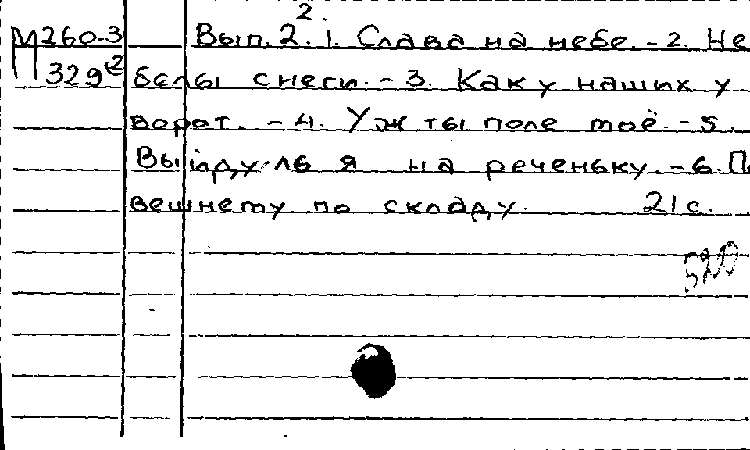 2.
М260-3 Вып. 2. 1. Слава на небе. - 2. Не
329 белы снеги. - 3. Как у наших у
ворот. - 4. Уж ты поле моё. - 5.
Выйду ль я на реченьку. - 6. П
вешнему по складу. 21 с.